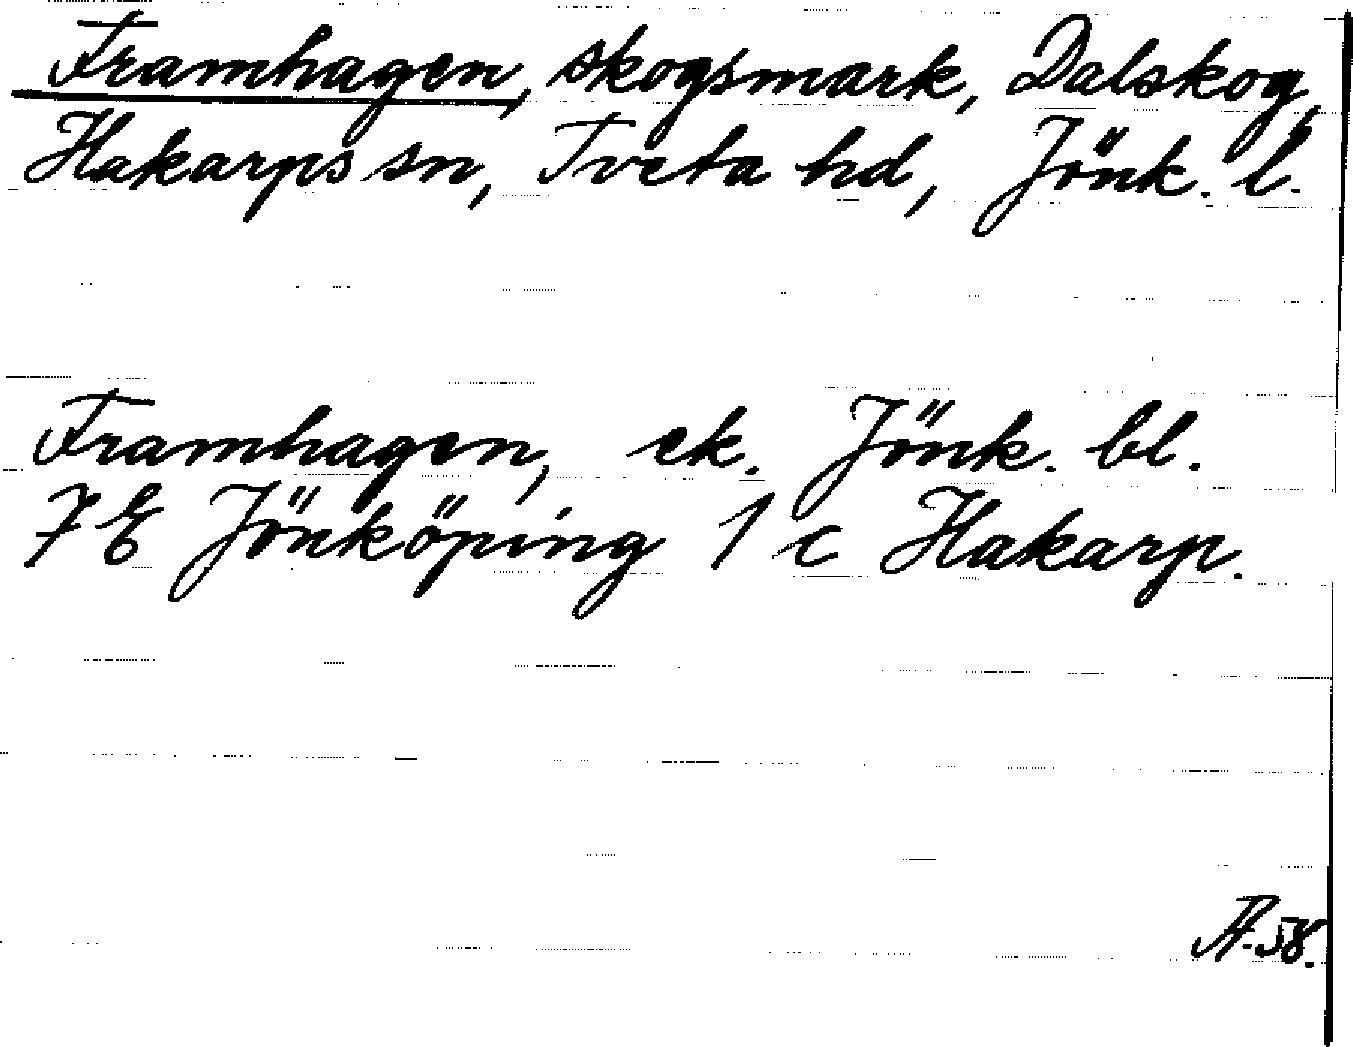 Framhagen, skogsmark, Dalskog,
Hakarps sn, Tveta hd, Jönk. l.
Framhagen, ek. Jönk. bl.
7E Jönköping 1 c Hakarp.